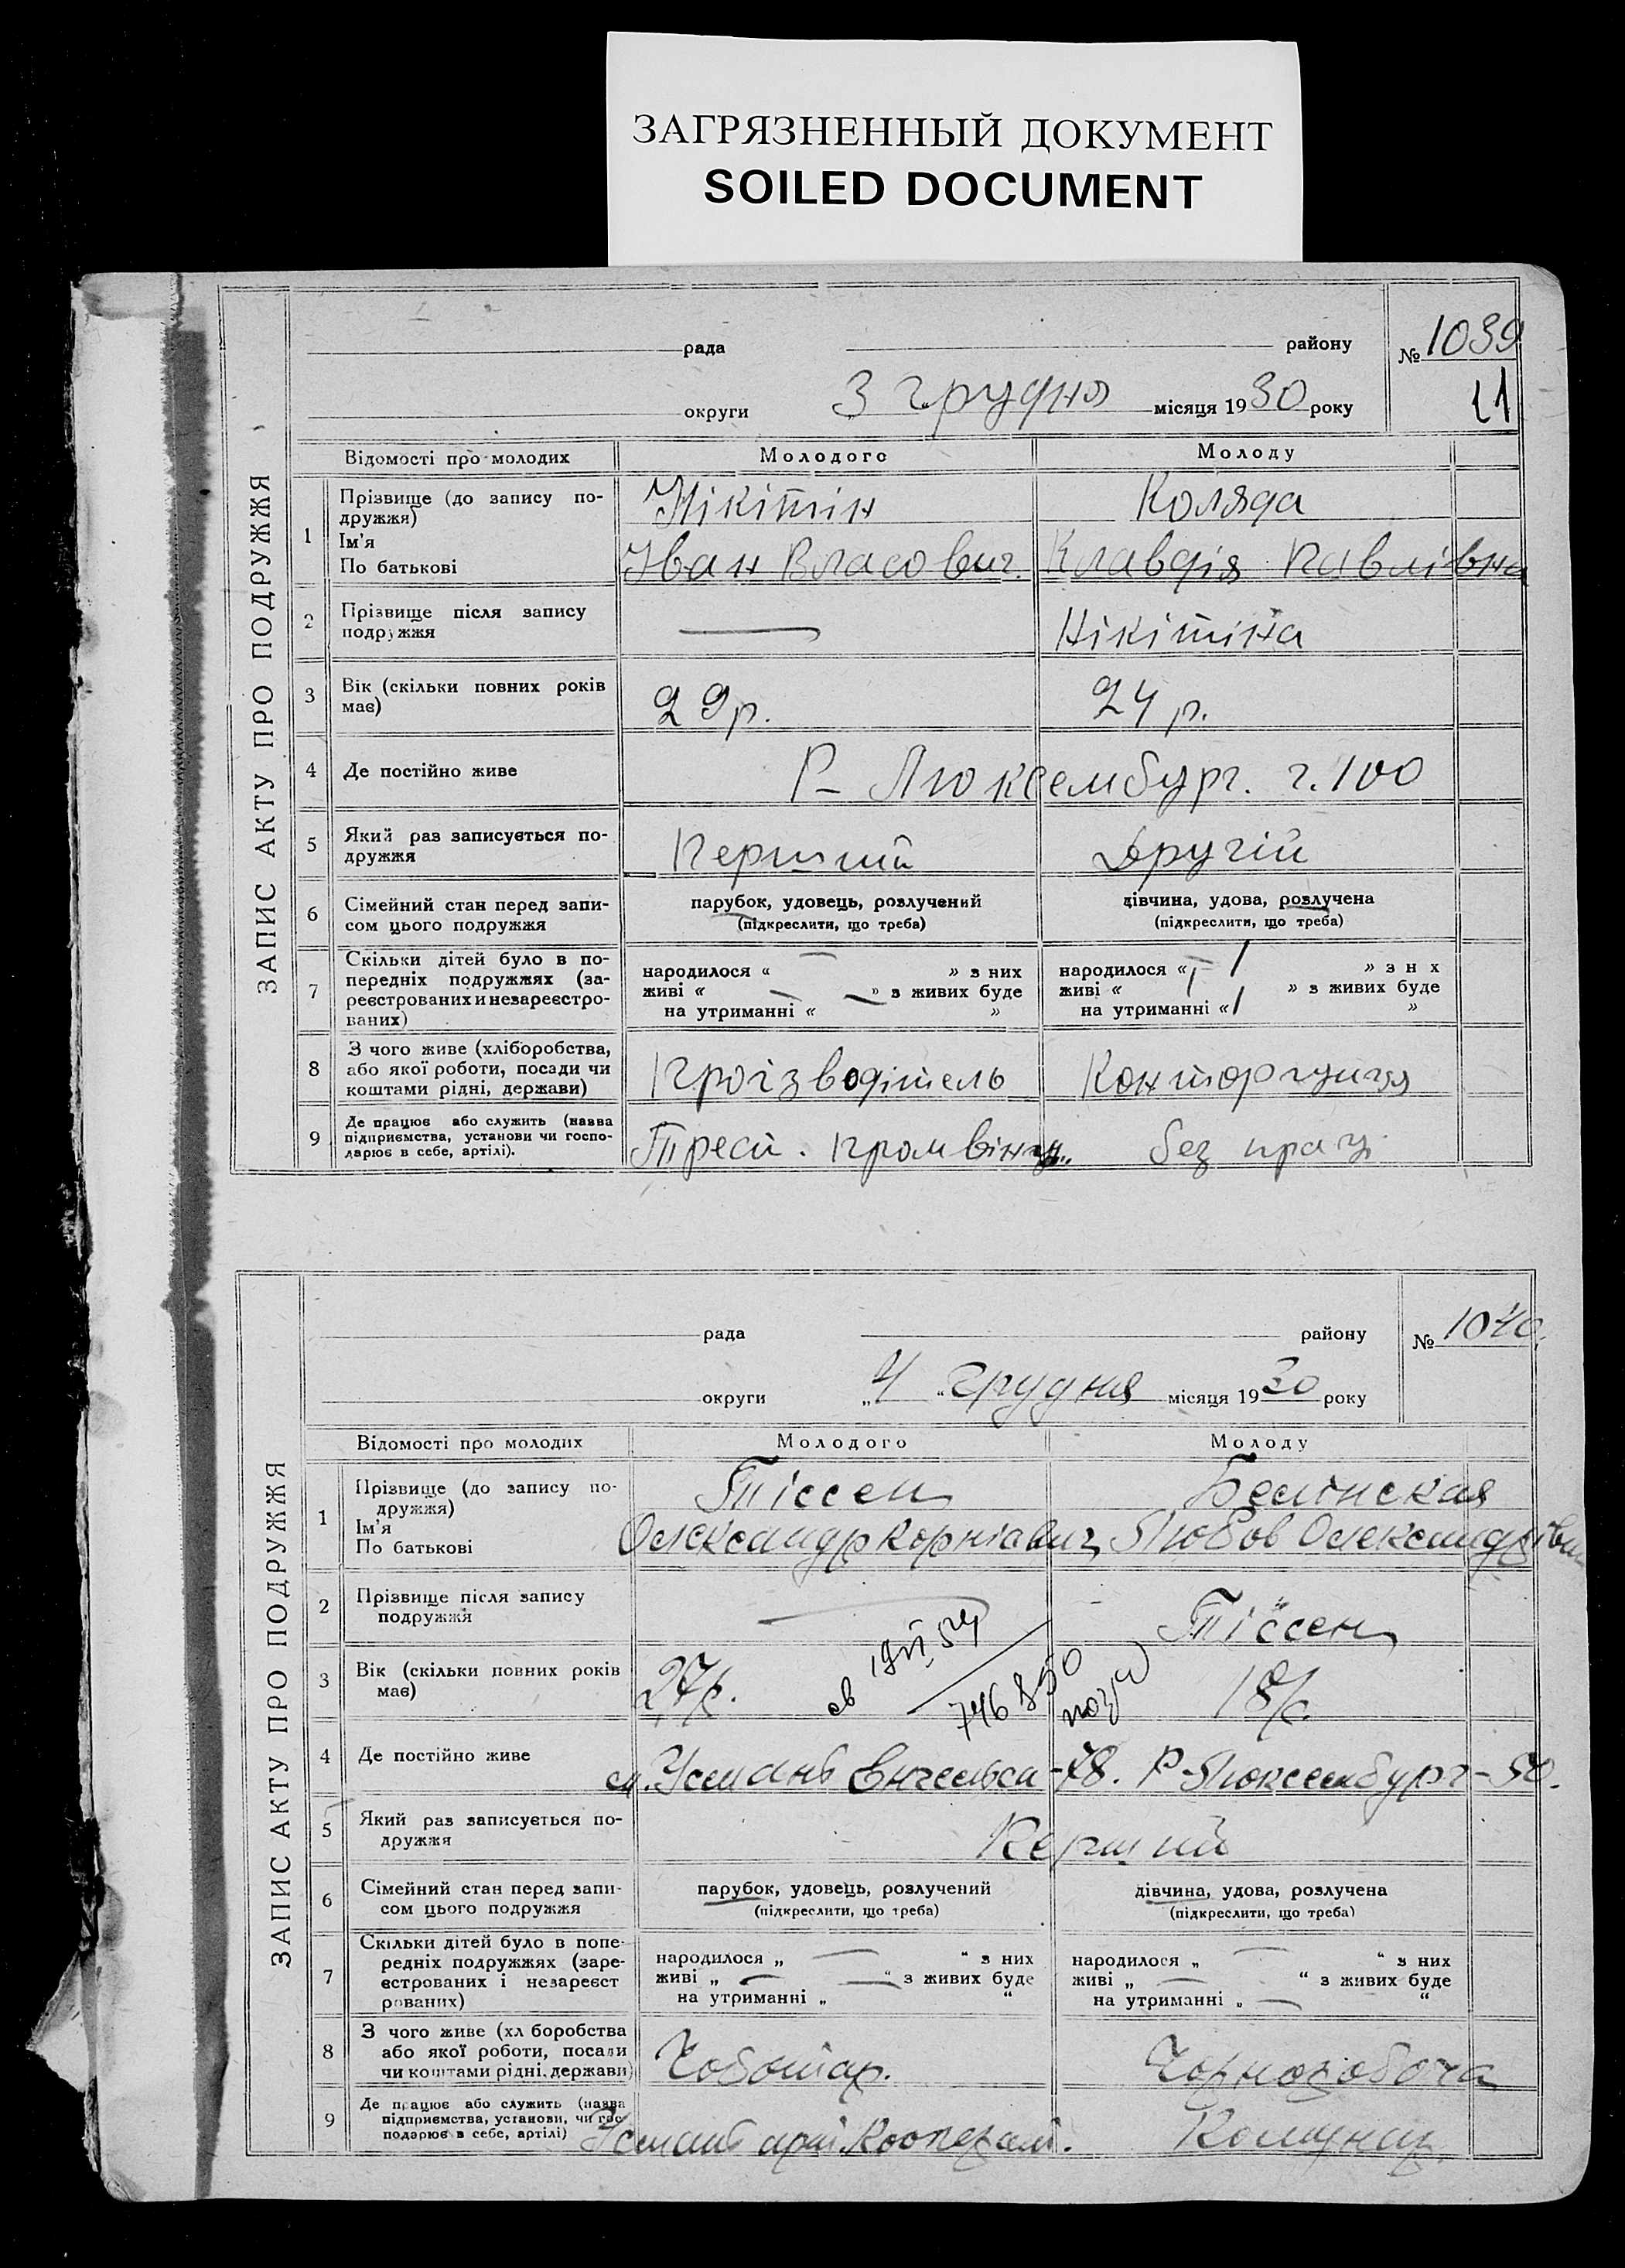 ЗАГРЯЗНЕННЫЙ ДОКУМЕНТ
SOILED DOCUMENT
ЗАПИС АКТУ ПРО ПОДРУЖЖЯ
рада району № 1039
округи 3 грудня місяця 1930 року 21
Відомості про молодих Молодого Молоду
1 Прізвище (до запису по- Нікітін Коляда
дружжя)
Ім'я
По батькові Іван Власович. Клавдія Павлівна
2 Прізвище після запису
подружжя — Нікітіна
3 Вік (скільки повних років
має) 29 р. 24 р.
4 Де постійно живе Р- Люксембург. г. 100
5 Який раз записується по-
дружжя Перший Другій
6 Сімейний стан перед запи- парубок, удовець, розлучений дівчина, удова, розлучена
сом цього подружжя (підкреслити, що треба) (підкреслити, що треба)
7 Скільки дітей було в по-
передніх подружжях (за- народилося « — » з них народилося « 1 » з н х
реєстрованих и незареєстро- живі « — » з живих буде живі « » з живих буде
ваних) на утриманні « » на утриманні « 1 »
8 З чого живе (хліборобства,
або якої роботи, посади чи Проізводітель Конторщиця
коштами рідні, держави)
9 Де працює або служить (назва
підприємства, установи чи госпо- Трест. без прац.
дарює в себе, артілі).
ЗАПИС АКТУ ПРО ПОДРУЖЖЯ
рада району № 1040.
округи „ 4 “ грудня місяця 1930 року
Відомості про молодих Молодого Молоду
1 Прізвище (до запису по- Тіссен
дружжя)
Ім'я Олександр Корніавич Любов Олександрівна
По батькові
2 Прізвище після запису
подружжя — Тіссен
3 Вік (скільки повних років 27 р. 18 р.
має)
4 Де постійно живе Енгельса - 78. Р-Люксембург - 50.
5 Який раз записується по-
дружжя Перший
6 Сімейний стан перед запи- парубок, удовець, розлучений дівчина, удова, розлучена
сом цього подружжя (підкреслити, що треба) (підкреслити, що треба)
7 Скільки дітей було в попе-
редніх подружжях (заре- народилося „ — “ з них народилося „ — “ з них
єстрованих і незареєст живі „ — “ з живих буде живі „ — “ з живих буде
рованих) на утриманні „ “ на утриманні „ — “
8 З чого живе (хл боробства
або якої роботи, посади Чоботар. Чорноробоча
чи коштами рідні, держави)
9 Де працює або служить (назва
підприємства, установи, чи гос
подарює в себе, артілі)